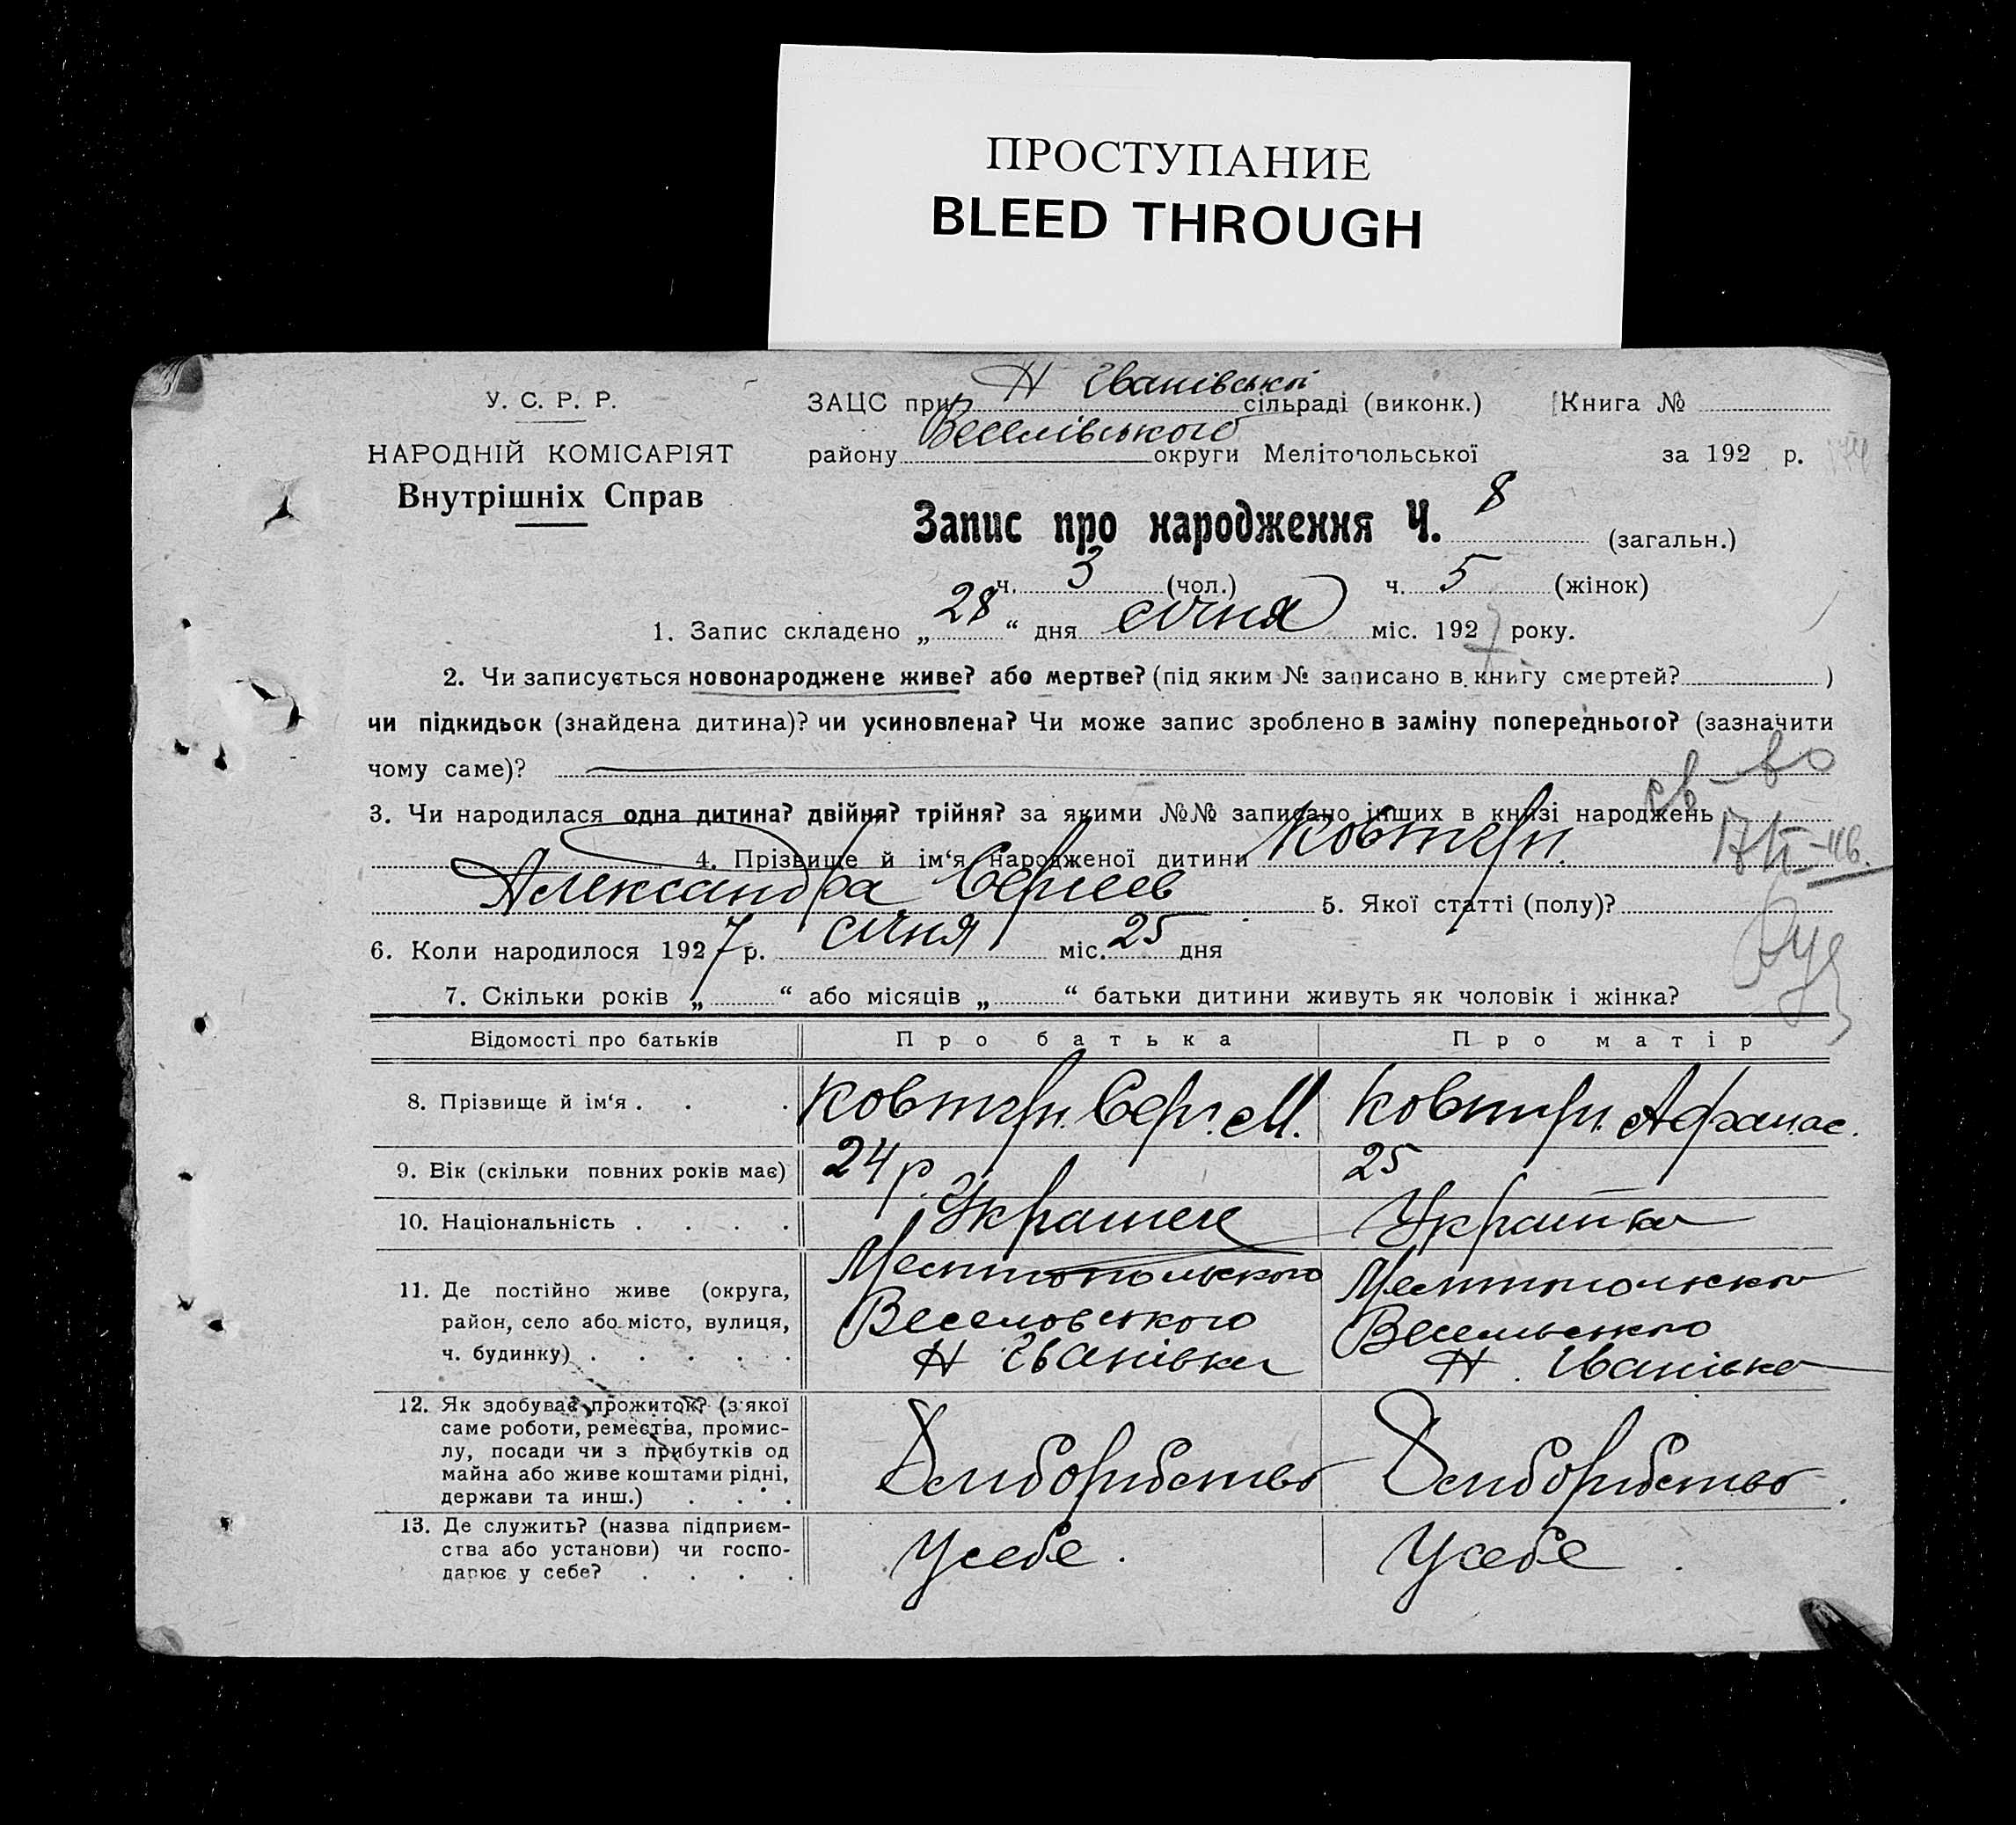 ПРОСТУПАНИЕ
BLEED THROUGH
У. С. Р. Р.
НАРОДНІЙ КОМІСАРІЯТ
Внутрішніх Справ
ЗАЦС при Н Іванівській сільраді (виконк.) Книга №
району Веселівського округи Мелітопольської за 192 р.
Запис про народження Ч. 8 (загальн.)
ч. 3 (чол.) ч. 5 (жінок)
1. Запис складено „28“ дня січня міс. 1927 року.
2. Чи записується новонароджене живе? або мертве? (під яким № записано в книгу смертей? )
чи підкидьок (знайдена дитина)? чи усиновлена? Чи може запис зроблено в заміну попереднього? (зазначити
чому саме)?
св-во
3. Чи народилася одна дитина? двійня? трійня? за якими №№ записано інших в книзі народжень
4. Прізвище й ім‘я народженої дитини Ковтун.
Александра Сергеев 5. Якої статті (полу)?
6. Коли народилося 1927 р. січня міс. 25 дня
7. Скільки років „ “ або місяців „ “ батьки дитини живуть як чоловік і жінка?
Відомості про батьків Про батька Про матір
8. Прізвище й ім‘я . . . Ковтун. Серг. М. Ковтун. Афанас.
9. Вік (скільки повних років має) 24 р. 25
10. Національність . . . . Украинец Украинка
11. Де постійно живе (округа,
район, село або місто, вулиця,
ч. будинку) . . . . .
Мелитопольского
Веселовського
Н Іванівка
Мелитопольского
Весельвского
Н. Іванівка
12. Як здобуває прожиток? (з якої
саме роботи, ремества, промис-
лу, посади чи з прибутків од
майна або живе коштами рідні,
держави та инш.) . . . .
Хлиборобство Хлиборобство.
13. Де служить? (назва підприєм-
ства або установи) чи госпо-
дарює у себе? . . . .
У себе. У себе.